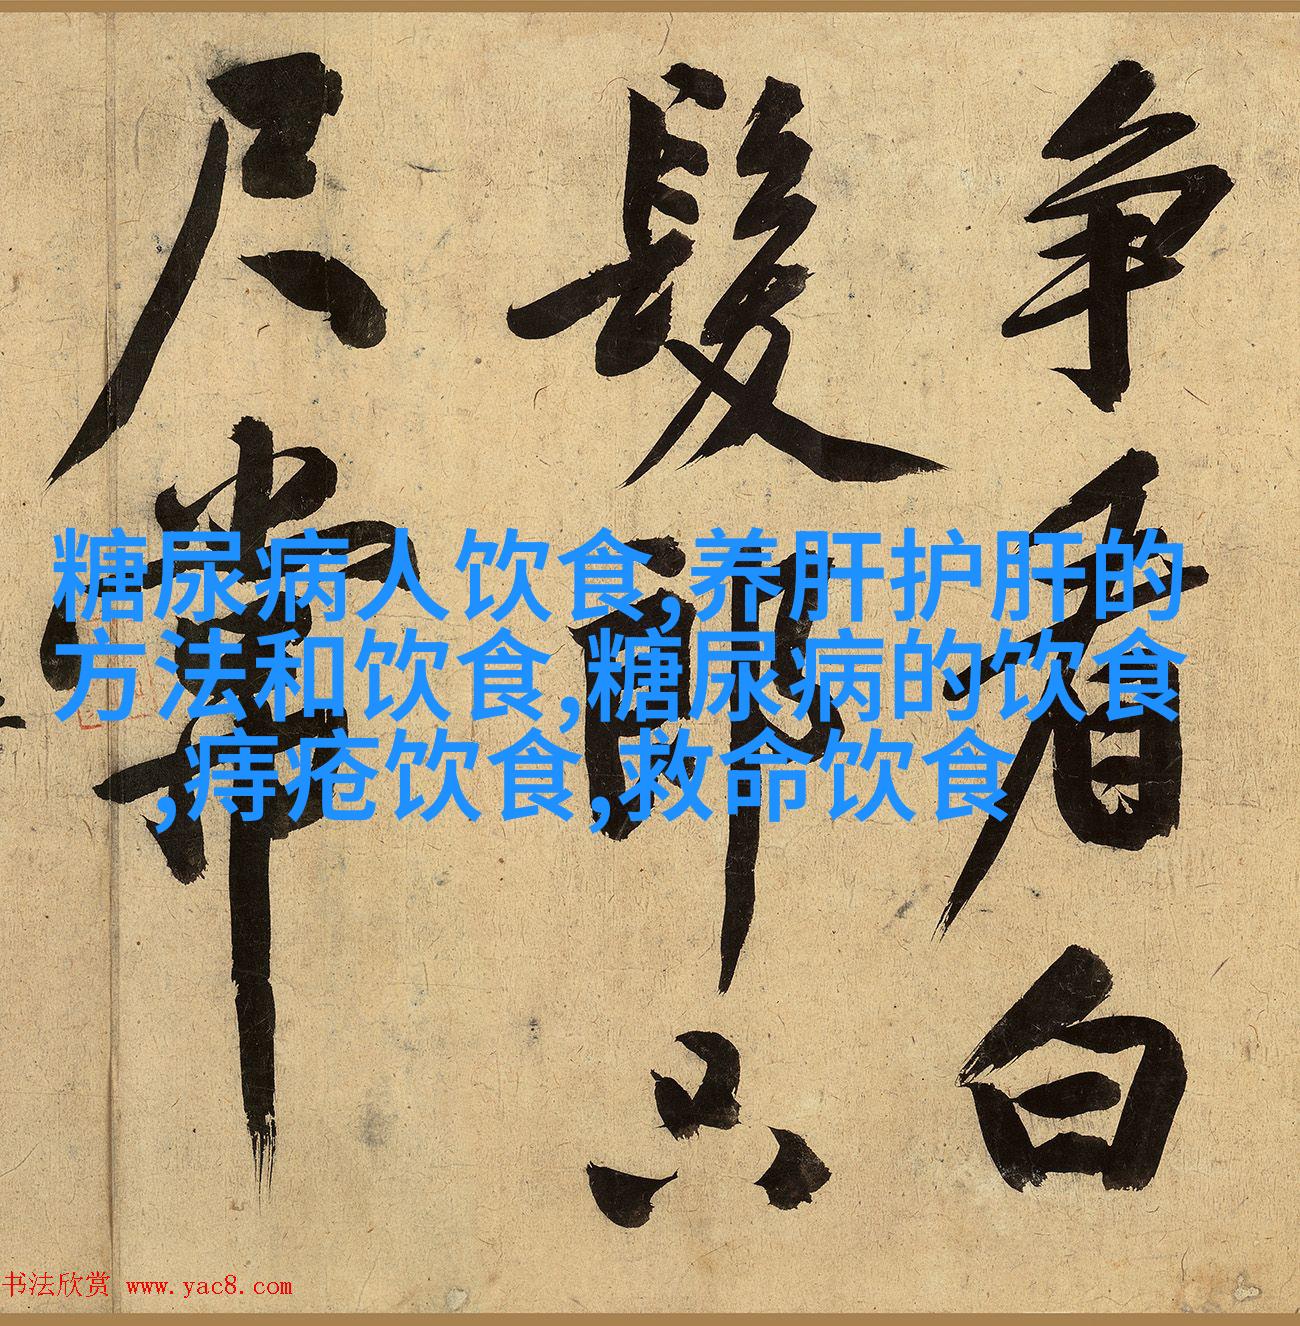 争看白
髮郎只
尺常
糖尿病人饮食,养肝护肝的
方法和饮食,糖尿病的饮食
,痔疮饮食,救命饮食
书法欣赏 www.yac8.com